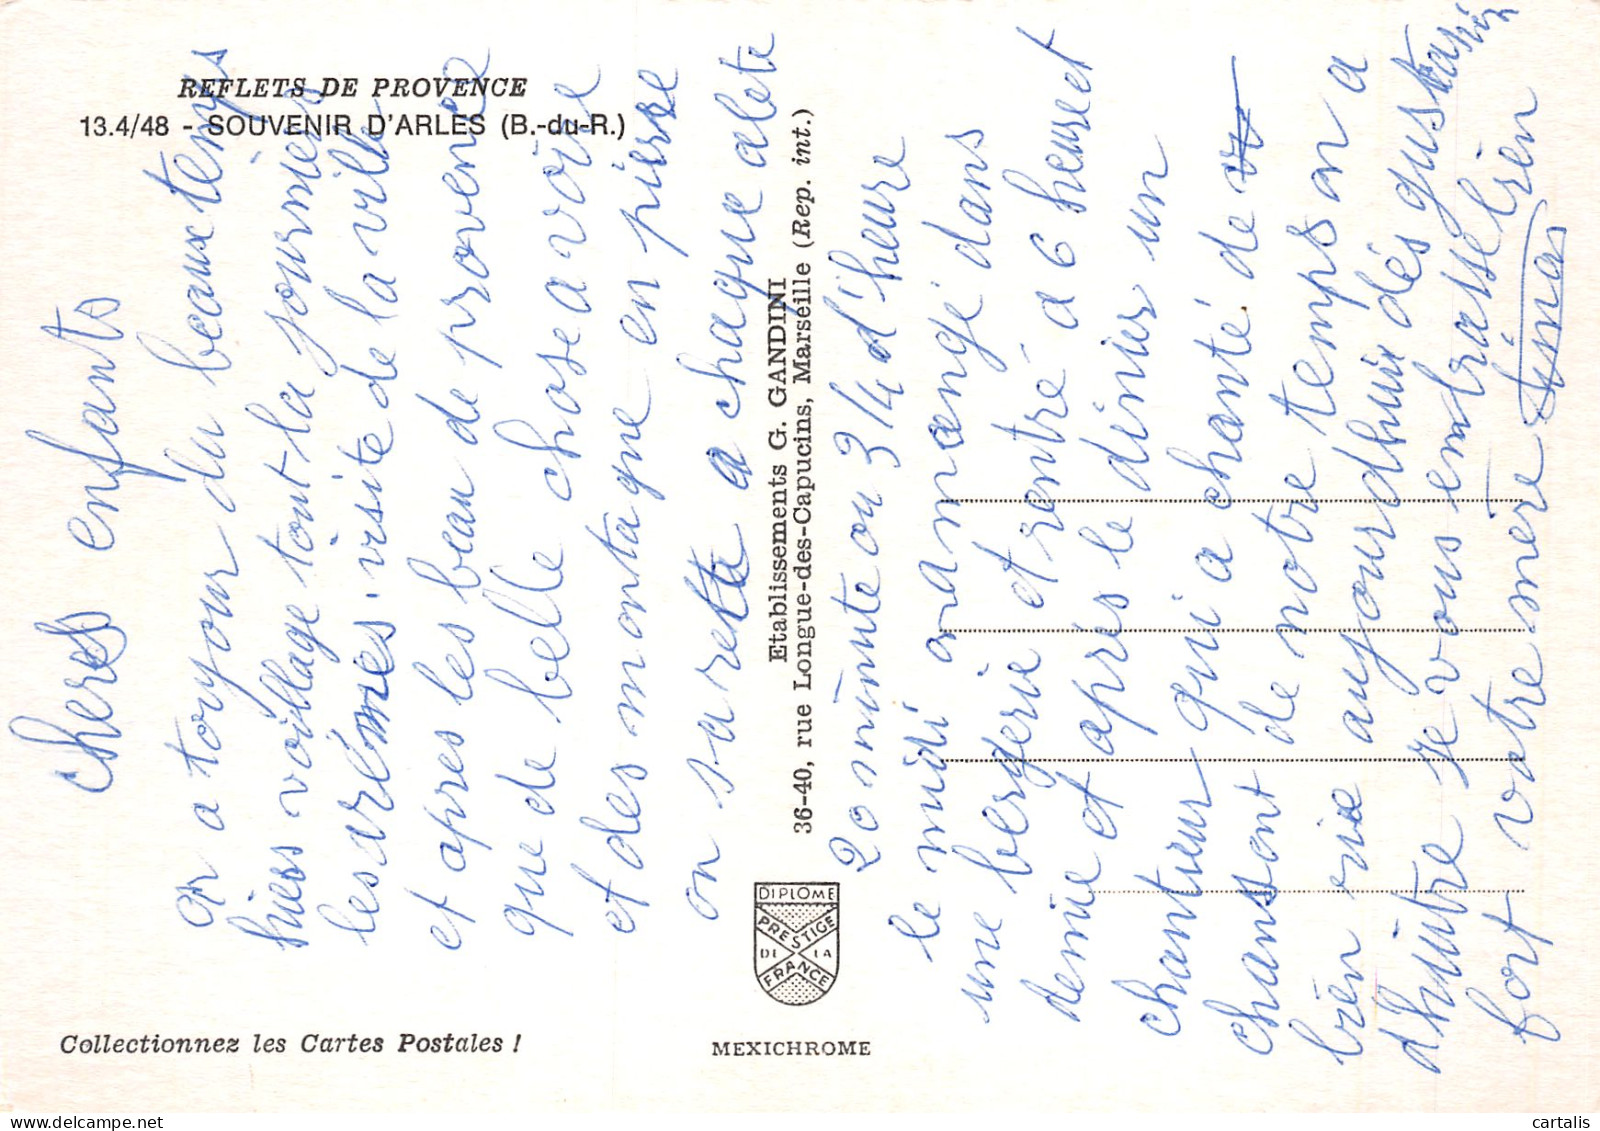 REFLETS DE PROVENCE
13.4/48 - SOUVENIR D'ARLES (B.-du-R.)
chers enfants
on a toujour du beaux temps
hiers voillage tout la journier
les arlémes. visite de la ville
et apres les beau de provence
que de belle chose a voire
et des montagne en pierre
on s'arette a chaque alete
20 minute ou 3/4 d'heure
le midi on a mangé dans
une bergerie et rentré a 6 heure et
demie et apres le dinier un
chanteur qui a chanté de
chansont de notre temps on a
bien rie aujourdhui dés gustasion
d'huitre je vous embrasse bien
fort votre mere
Etablissements G. GANDINI
36-40, rue Longue-des-Capucins, Marseille (Rep. int.)
DIPLOME
PRESTIGE
DE LA
FRANCE
Collectionnez les Cartes Postales !
MEXICHROME
cartalis